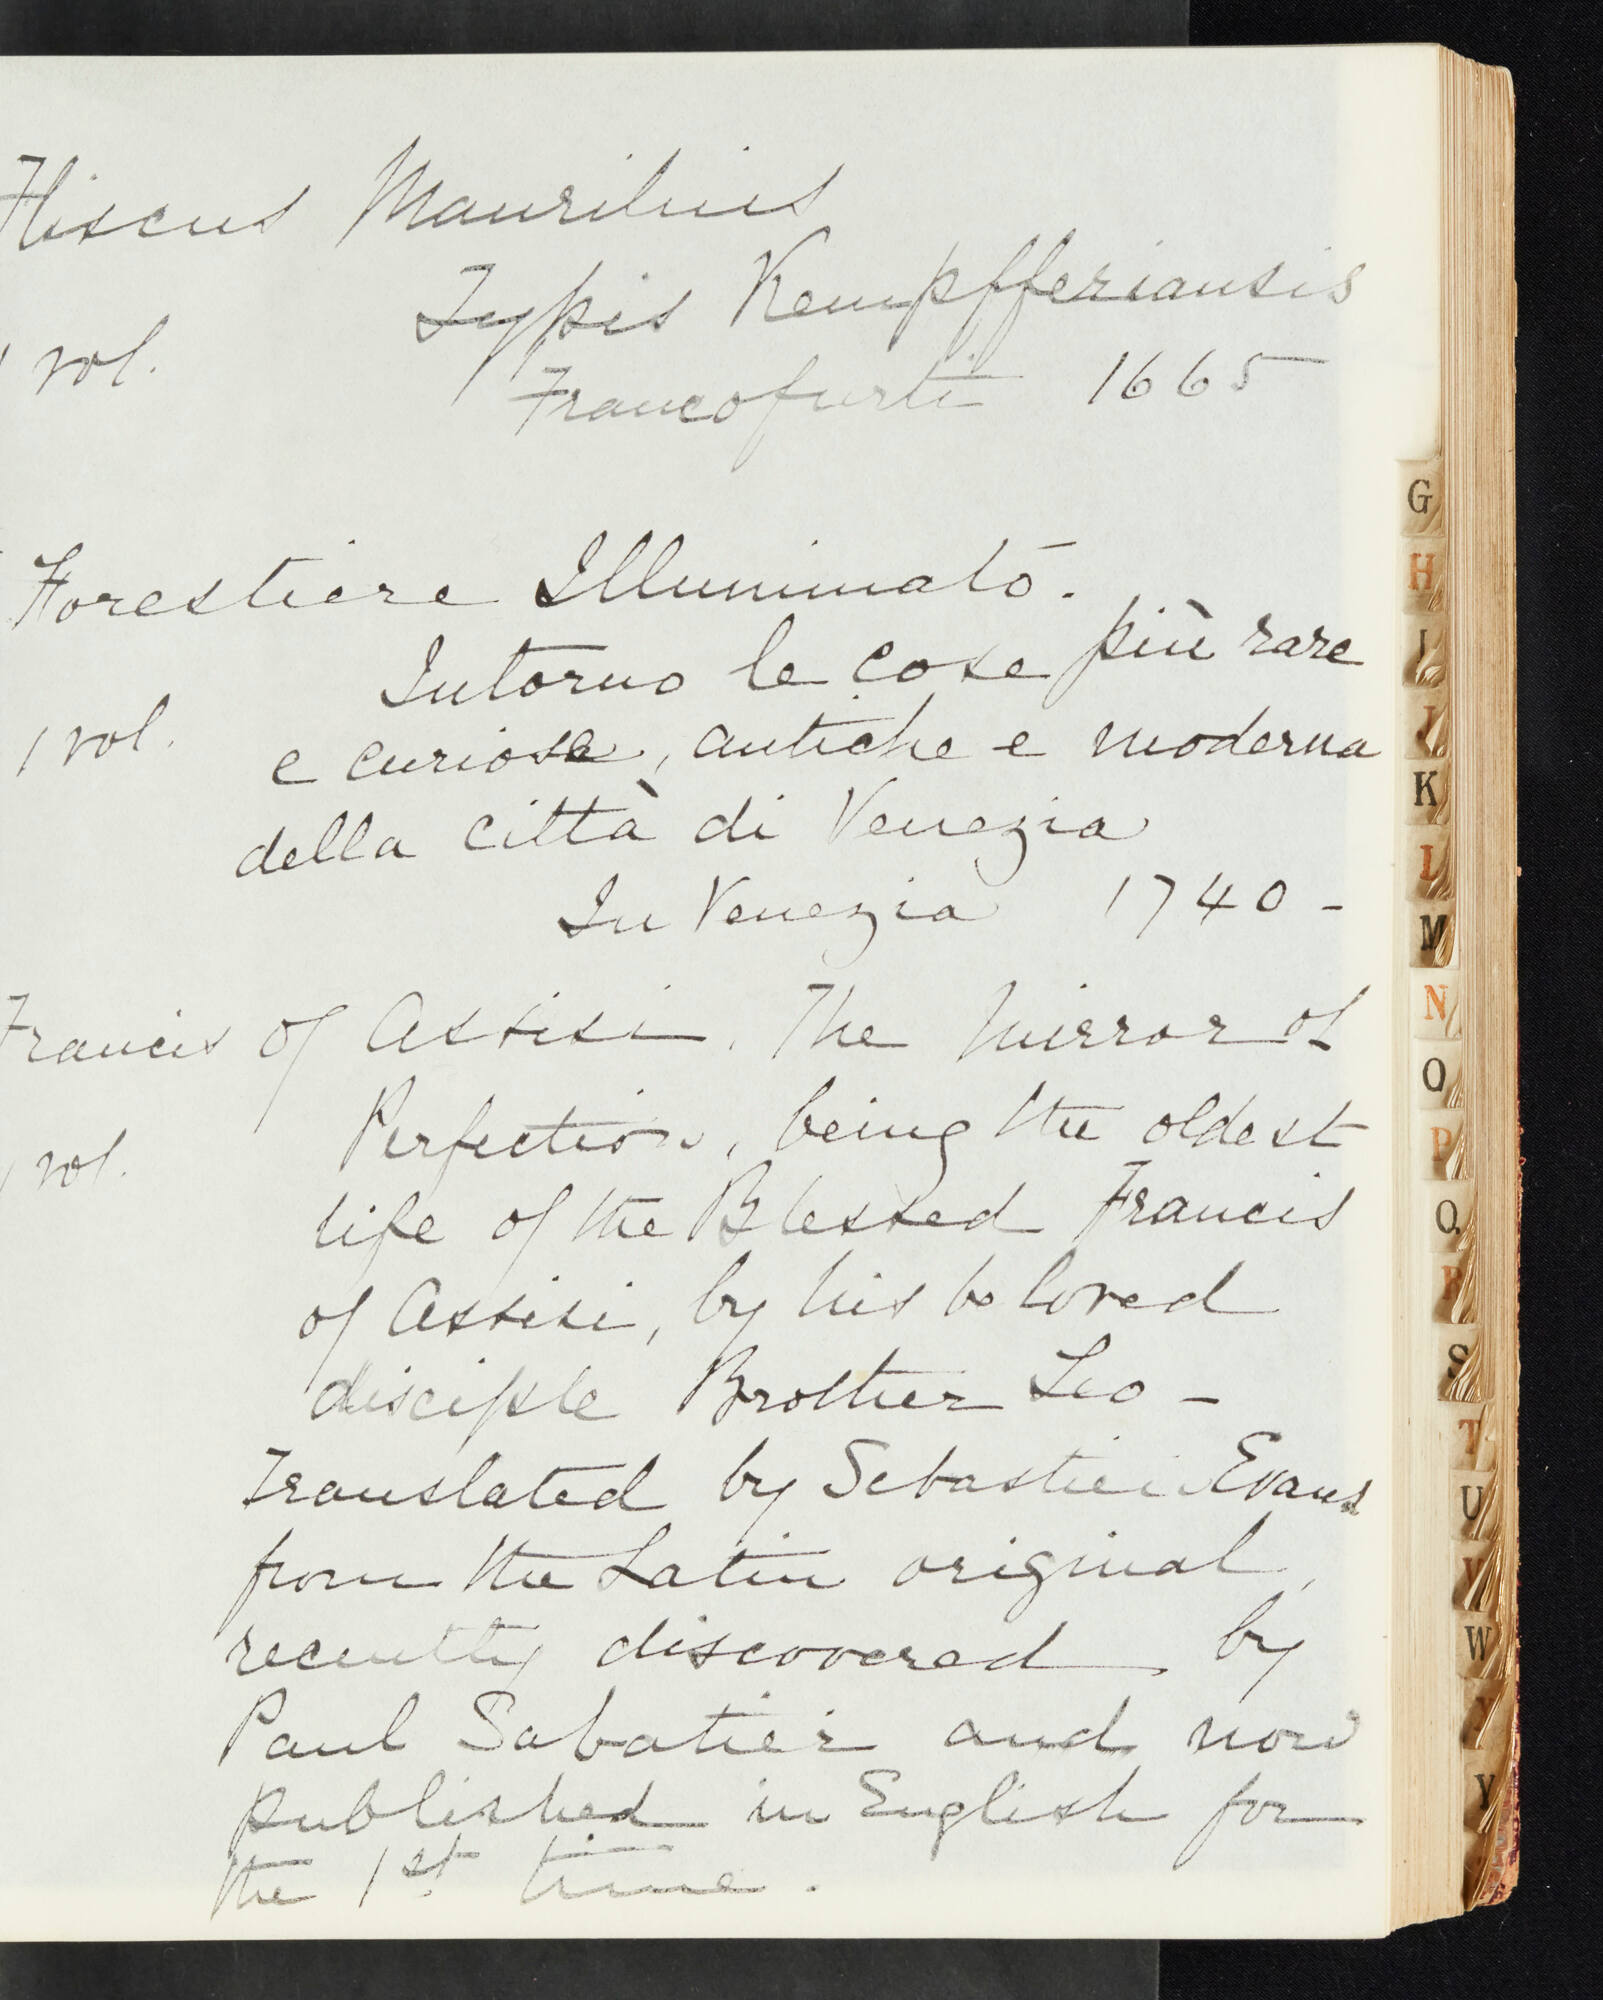 Fliscus Maurilius
Typis Kempfferiansis
1 vol.
Francofurti 1665
Forestiere Illuminato.
Intorno le cose più rare
1 vol.
e curiose, antiche e moderna
della città di Venezia
In Venezia 1740 -
Francis of Assisi. The Mirror of
Perfection, being the oldest
1 vol.
life of the Blessed Francis
of Assisi, by his beloved
disciple Brother Leo -
Translated by Sebastien Evans
from the Latin original,
recently discovered by
Paul Sabatier and now
published in English for
the 1st. time.
G
H
I
J
K
L
M
N
O
P
Q
R
S
T
U
V
W
X
Y